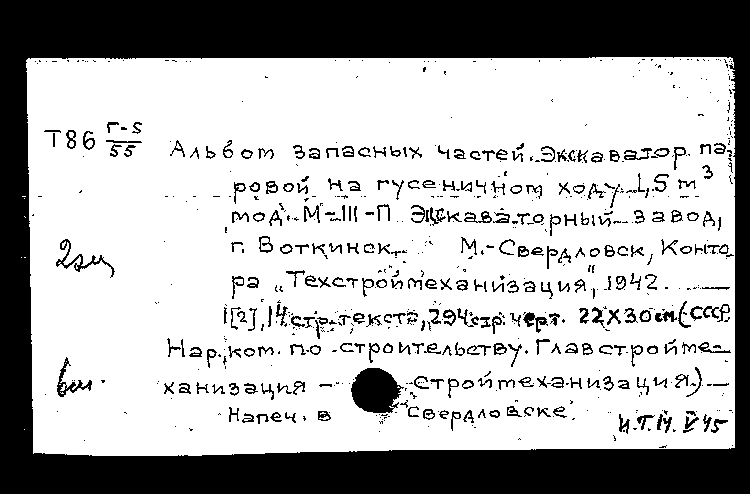 Т86 Г-5/55
Альбом запасных частей. Экскаватор па-
ровой на гусеничном ходу 1,5 м³
мод. М-III-П Экскаваторный завод,
г. Воткинск. М.-Свердловск, Конто
2 экз
ра „Техстроймеханизация", 1942.
[2], 14 стр. текста, 294 стр. черт. 22X30 см. (СССР.
Нар. ком. по строительству. Главстройме-
ханизация – Строймеханизация.) —
Напеч. в Свердловске.
И.Т.М. V 45